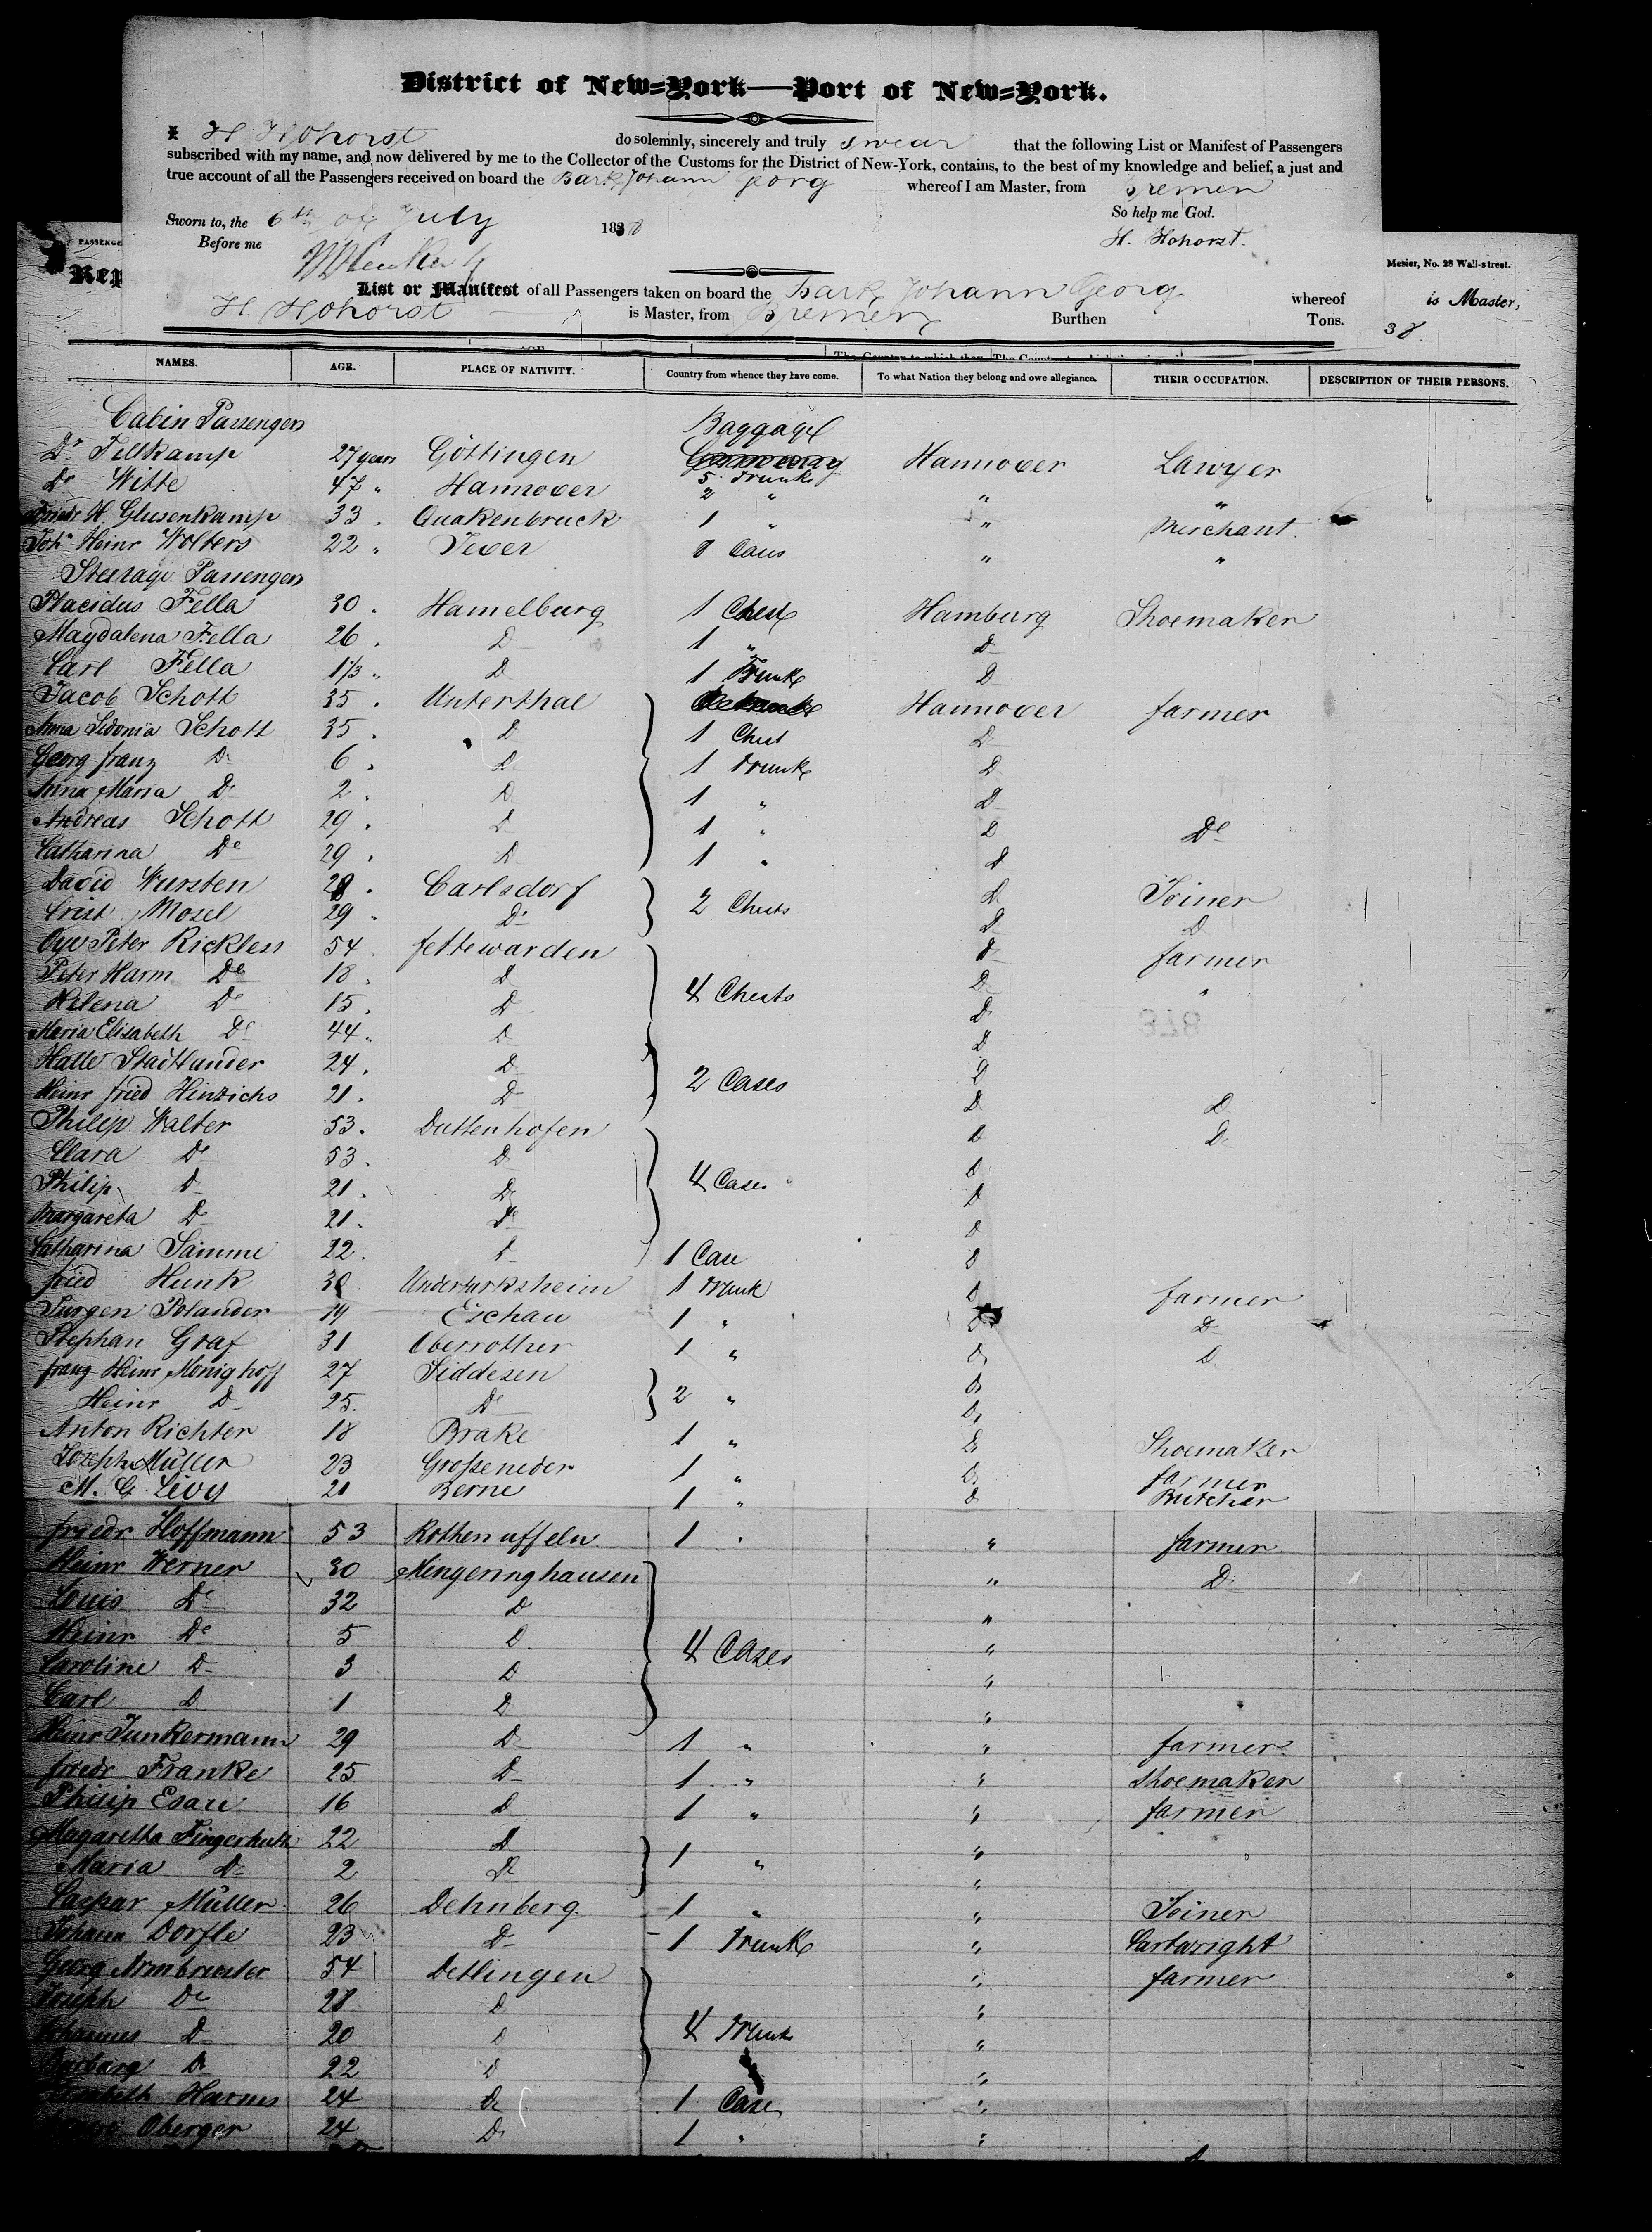 District of New=York—Port of New=York.
I H Hohorst do solemnly, sincerely and truly swear that the following List or Manifest of Passengers
subscribed with my name, and now delivered by me to the Collector of the Customs for the District of New-York, contains, to the best of my knowledge and belief, a just and
true account of all the Passengers received on board the Bark Johann Georg whereof I am Master, from Bremen
So help me God.
Sworn to, the 6th of July 1838
Before me H. Hohorst.
PASSENGE
Rep
Mesier, No. 28 Wall-street.
List or Manifest of all Passengers taken on board the Bark Johann Georg whereof is Master,
H Hohorst is Master, from Bremen Burthen Tons. 38
NAMES. AGE. PLACE OF NATIVITY. Country from whence they have come. To what Nation they belong and owe allegiance. THEIR OCCUPATION. DESCRIPTION OF THEIR PERSONS.
Cabin Passengers Baggage
Dr Fellkamp 27 years Göttingen Germany Hannover Lawyer
5 Trunks
Dr Witte 47 " Hannover 2 " " "
Friedr H. Glusenkamp 33 . Quakenbruck 1 " " Merchant
Joh Heinr Wolters 22 " Jever 8 " "
Steerage Passengers
Placidus Fella 30 . Hamelburg 1 Chest Hamburg Shoemaker
Magdalena Fella 26 . D 1 " D
Carl Fella 1⅓ " D 1 Trunk D
Jacob Schott 35 . Unterthal Hannover farmer
Anna Sidonia Schott 35 . D 1 Chest D
Georg franz D 6 . D 1 Trunk D
Anna Maria D 2 . D 1 " D
Andreas Schott 29 . D 1 " D Do
Catharina Do 29 . D 1 " D
David Wursten 28 . Carlsdorf 2 Chests D Joiner
Crist Mosel 29 . D D D
Peter Rickless 54 fettewarden D farmer
Peter Harm Do 18 . D 4 Chests D "
Helena Do 15 . D D
Maria Elisabeth Do 44 . D D
Halle Stadtlander 24 . D 2 Cases D
Heinr fried Hinrichs 21 . D D D
Philip Walter 53 . Duttenhofen D D
Clara Do 53 . D D
Philip D 21 . D 4 Cases D
Margareta D 21 . D D
Catharina Samme 22 . D 1 Case D
fried Hunk 1 Trunk D farmer
Jurgen Polander 19 Eschau 1 " D D
Stephan Graf 31 Oberrother 1 " D D
franz Heinr Monighoff 27 Siddesen 2 " D
Heinr D 25 . Do D
Anton Richter 18 Brake 1 " D Shoemaker
Joseph Müller 23 Grosseneder 1 " D farmer
M. G. Levy 21 Berne 1 " D Butcher
friedr Hoffmann 53 Rothenuffeln 1 " " farmer
Heinr Werner 30 Mengeringhausen " D
Louis Do 32 D "
Heinr Do 5 D 4 Cases "
Caroline D 3 D "
Carl D 1 D "
Heinr Junkermann 29 D 1 " " farmer
friedr Franke 25 D 1 " " Shoemaker
Philip Esau 16 D 1 " " farmer
Magaretta Fingerhuth 22 D 1 " "
Maria Do 2 D "
Caspar Müller 26 Dehnberg 1 " " Joiner
Johann Dorfle 23 D 1 Trunk " Cartwright
Georg Armbruster 54 Detlingen " farmer
Joseph Do 28 D "
Johannes D 20 D 4 Trunks "
Barbara D 22 D "
Elisabeth Harms 24 D 1 Case "
Oberger 24 D 1 " "